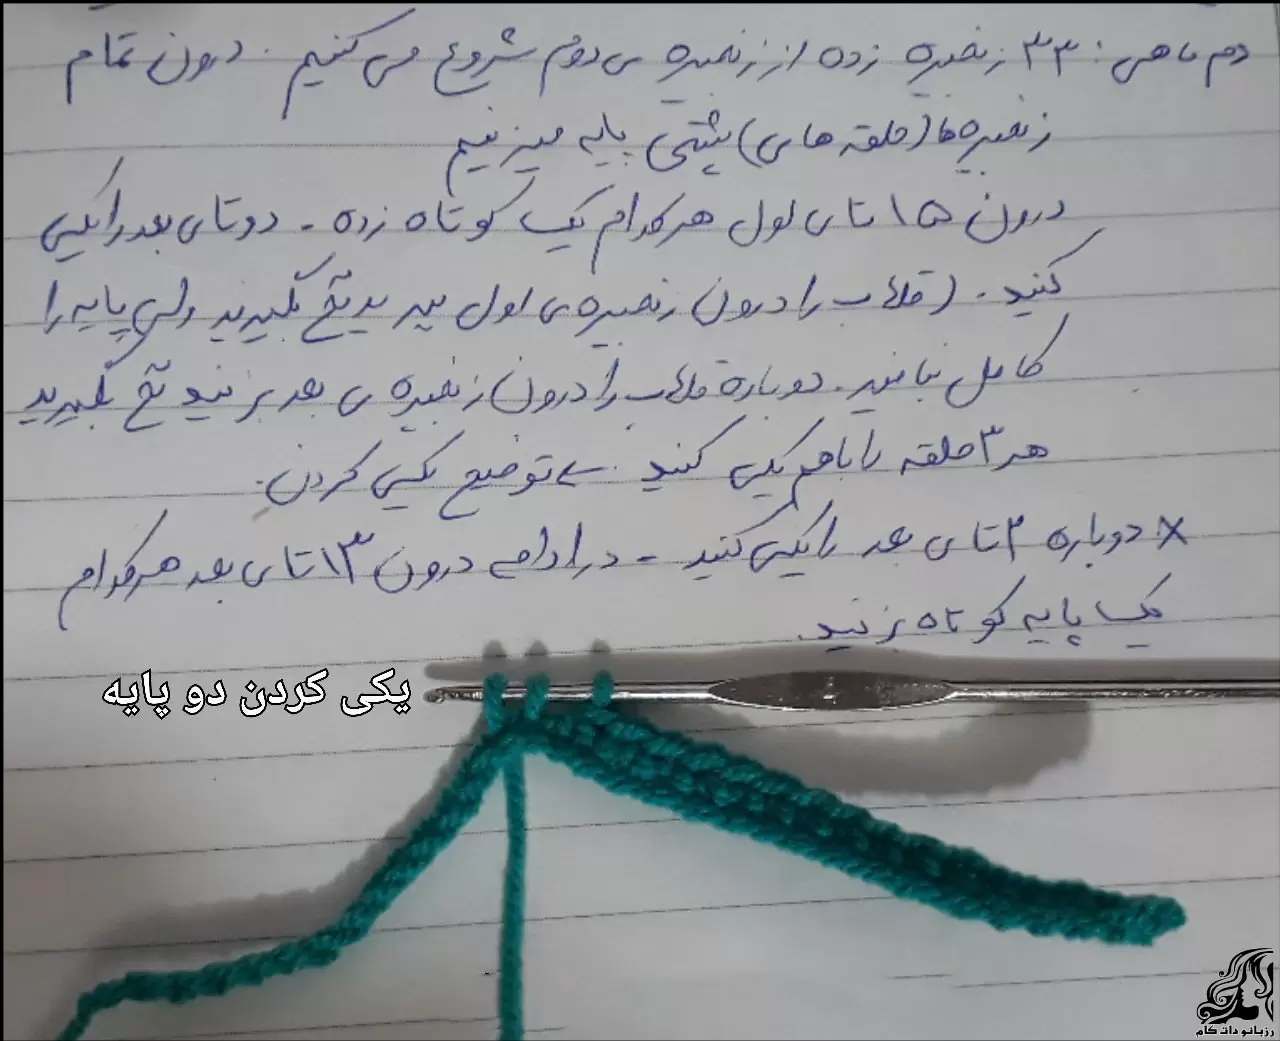 دم ماهی: ۳۳ زنجیره زده از زنجیره ی دوم شروع می کنیم. درون تمام
زنجیره ها (حلقه های) پشتی پایه میزنیم
درون ۱۵ تای اول هرکدام یک کوتاه زده - دو تای بعد را یکی
کنید. (قلاب را درون زنجیره ی اول ببرید نخ بگیرید ولی پایه را
کامل نبافید. دوباره قلاب را درون زنجیره ی بعد بزنید نخ بگیرید
هر ۳ حلقه را باهم یکی کنید. ← توضیح یکی کردن.
× دوباره ۲ تای بعد را یکی کنید - در ادامه درون ۱۳ تای بعد هرکدام
یک پایه کوتاه بزنید.
یکی کردن دو پایه
رزبانو دات کام